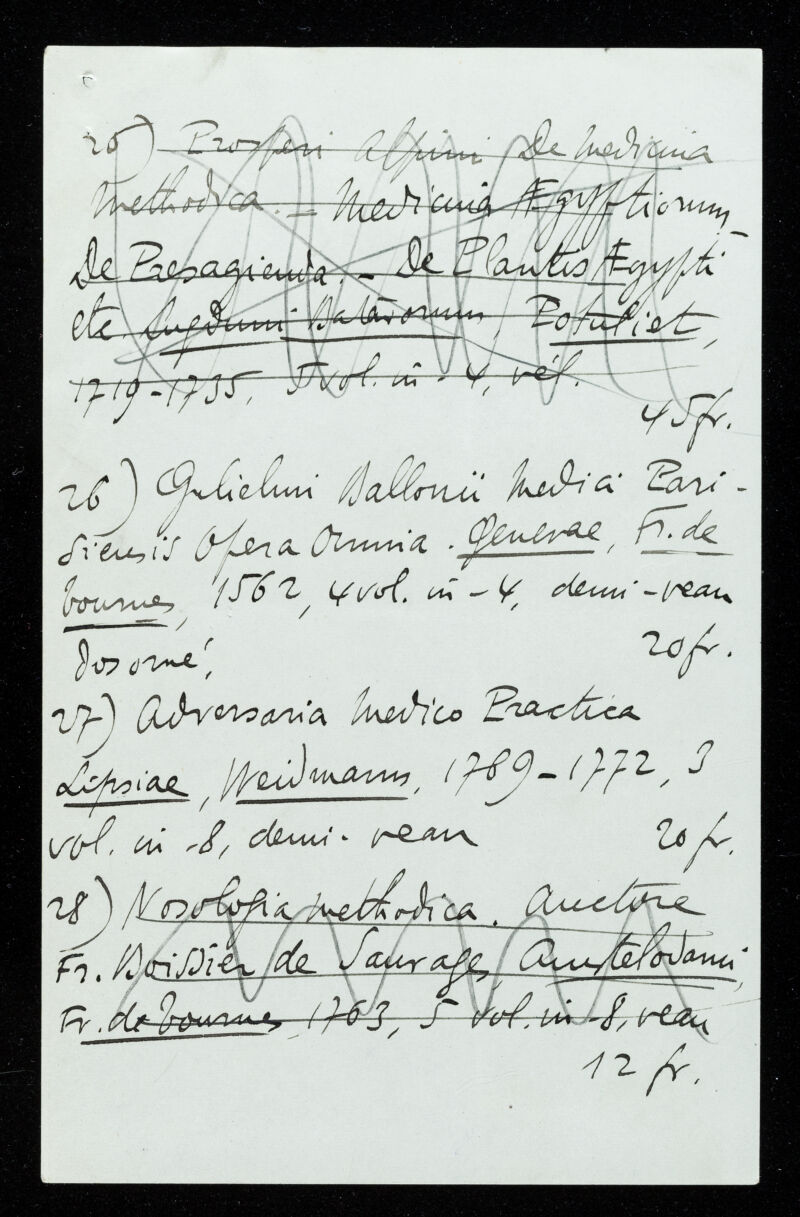 25) Prosperi Alpini De Medicina
Methodica. – Medicina Ægyptiorum –
De Praesagienda. – De Plantis Ægypti
etc Lugduni Batavorum, Potuliet,
1719-1735, 5 vol. in-4, vél.
45fr.
26) Gulielmi Ballonii Medici Pari-
siensis Opera Omnia. Genevae, Fr. de
Tournes, 1562, 4 vol. in-4, demi-veau
dos orné,
20fr.
27) Adversaria Medico Practica
Lipsiae, Weidmanns, 1789-1772, 3
vol. in-8, demi-veau
20 fr.
28) Nosologia methodica. Auctore
Fr. Boissier de Sauvages, Amstelodami,
Fr. de Tournes 1763, 5 vol. in-8, veau
12 fr.